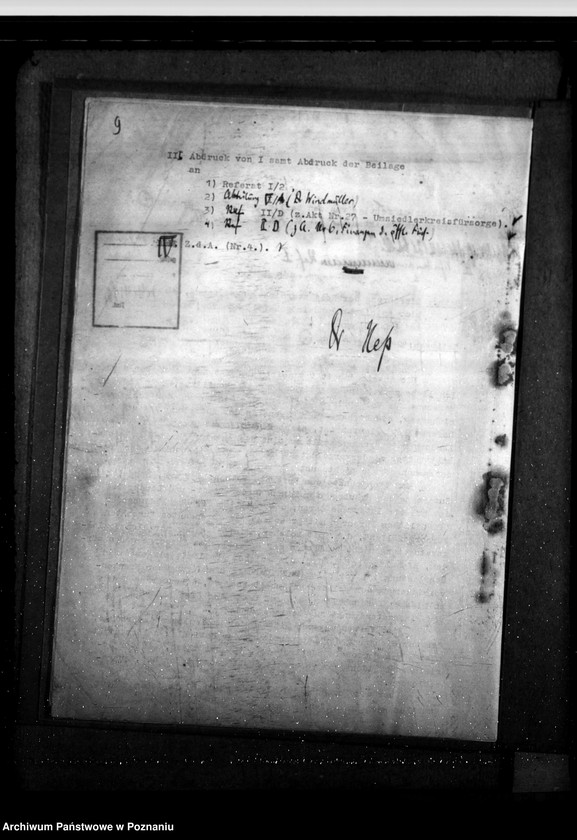 9
III Abdruck von I samt Abdruck der Beilage
an
1) Referat I/2.
2) Abteilung (Dr Windmüller)
3) Ref II/D (z.Akt Nr.27 - Umsiedlerkreisfürsorge).
4) Ref II D (z.A. Finanzen d. öfftl. Fürs.)
IV. Z.d.A. (Nr.4.).
Dr Heß
Archiwum Państwowe w Poznaniu